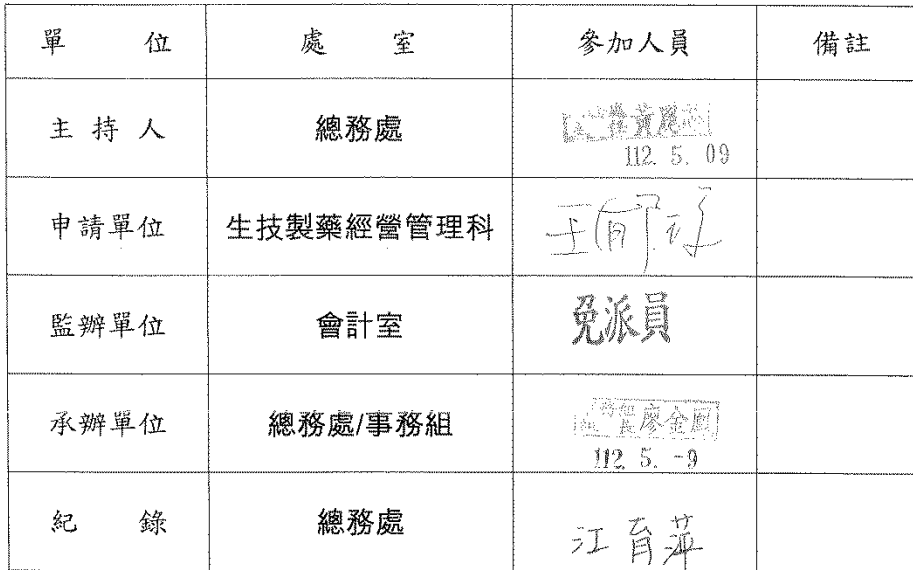 單 位 處 室 參加人員 備註
主 持 人 總務處 黃麗
112. 5. 09
申請單位 生技製藥經營管理科 王
監辦單位 會計室 免派員
承辦單位 總務處/事務組 組長 廖金鳳
112. 5. -9
紀 錄 總務處 江育萍